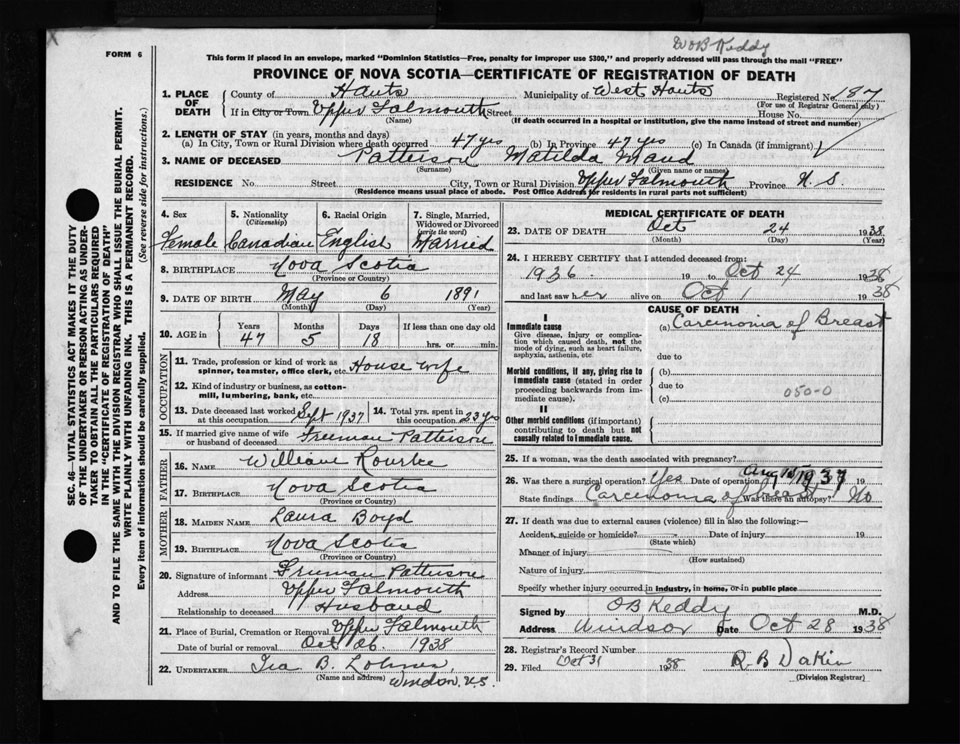 W OB Keddy
FORM 6
This form if placed in an envelope, marked "Dominion Statistics—Free, penalty for improper use $300," and properly addressed will pass through the mail "FREE"
PROVINCE OF NOVA SCOTIA—CERTIFICATE OF REGISTRATION OF DEATH
SEC. 46—VITAL STATISTICS ACT MAKES IT THE DUTY
OF THE UNDERTAKER OR PERSON ACTING AS UNDER-
TAKER TO OBTAIN ALL THE PARTICULARS REQUIRED
IN THE "CERTIFICATE OF REGISTRATION OF DEATH"
AND TO FILE THE SAME WITH THE DIVISION REGISTRAR WHO SHALL ISSUE THE BURIAL PERMIT.
WRITE PLAINLY WITH UNFADING INK. THIS IS A PERMANENT RECORD.
Every item of information should be carefully supplied. (See reverse side for instructions.)
1. PLACE OF DEATH County of Hants Municipality of West Hants Registered No. 187
(For use of Registrar General only)
If in City or Town Upper Falmouth Street House No.
(Name) (If death occurred in a hospital or institution, give the name instead of street and number)
2. LENGTH OF STAY (in years, months and days)
(a) In City, Town or Rural Division where death occurred 47 yrs (b) In Province 47 yrs (c) In Canada (if immigrant)
3. NAME OF DECEASED Patterson Matilda Maud
(Surname) (Given name or names)
RESIDENCE No. Street City, Town or Rural Division Upper Falmouth Province N.S.
(Residence means usual place of abode. Post Office Address for residents in rural parts not sufficient)
4. Sex 5. Nationality (Citizenship) 6. Racial Origin 7. Single, Married, Widowed or Divorced (write the word)
Female Canadian English Married
8. BIRTHPLACE Nova Scotia
(Province or Country)
9. DATE OF BIRTH May 6 1891
(Month) (Day) (Year)
10. AGE in Years Months Days If less than one day
47 5 18 hrs. or min.
OCCUPATION
11. Trade, profession or kind of work as spinner, teamster, office clerk, etc. House wife
12. Kind of industry or business, as cotton-mill, lumbering, bank, etc.
13. Date deceased last worked at this occupation Sept 1937 14. Total yrs. spent in this occupation 23 yrs
15. If married give name of wife or husband of deceased Freeman Patterson
FATHER
16. NAME William Rourke
17. BIRTHPLACE Nova Scotia
(Province or Country)
MOTHER
18. MAIDEN NAME Laura Boyd
19. BIRTHPLACE Nova Scotia
(Province or Country)
20. Signature of informant Freeman Patterson
Address Upper Falmouth
Relationship to deceased Husband
21. Place of Burial, Cremation or Removal Upper Falmouth
Date of burial or removal Oct 26. 1938
22. UNDERTAKER Ira B.
(Name and address) Windsor. N.S.
MEDICAL CERTIFICATE OF DEATH
23. DATE OF DEATH Oct 24 1938
(Month) (Day) (Year)
24. I HEREBY CERTIFY that I attended deceased from:
1936 19 to Oct 24 1938
and last saw her alive on Oct 1 1938
CAUSE OF DEATH
I
Immediate cause (a) Carcinoma of Breast
Give disease, injury or complication which caused death, not the mode of dying, such as heart failure, asphyxia, asthenia, etc
due to
Morbid conditions, if any, giving rise to immediate cause (stated in order proceeding backwards from immediate cause).
(b)
due to
(c) 050-0
II
Other morbid conditions (if important) contributing to death but not causally related to immediate cause.
25. If a woman, was the death associated with pregnancy?
26. Was there a surgical operation? Yes Date of operation Aug 1937 19
State findings Carcinoma of Breast Was there an autopsy? No
27. If death was due to external causes (violence) fill in also the following:—
Accident, suicide or homicide? Date of injury 19
(State which)
Manner of injury
(How sustained)
Nature of injury
Specify whether injury occurred in industry, in home, or in public place
Signed by OB Keddy M.D.
Address Windsor Date Oct 28 1938
28. Registrar's Record Number
29. Filed Oct 31 1938 R B Dakin
(Division Registrar)